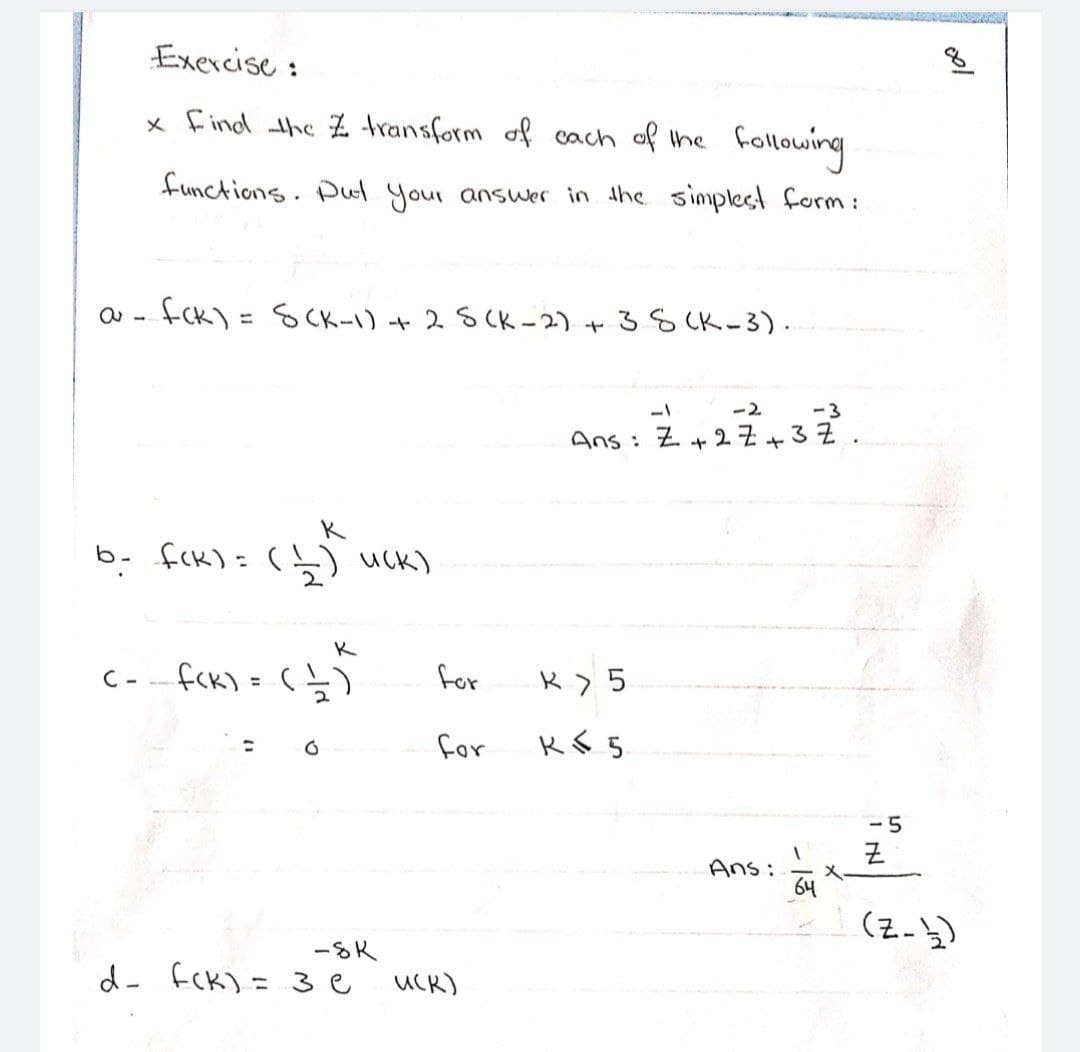 8
Exercise :
× Find the Z transform of each of the following
functions. Put your answer in the simplest form :
a - f(k) = δ(k-1) + 2 δ(k-2) + 3 δ(k-3).
Ans : Z⁻¹ + 2 Z⁻² + 3 Z⁻³ .
b- f(k) = (1/2)^k u(k)
c- f(k) = (1/2)^k for k > 5
= 0 for k ≤ 5
Ans : 1/64 × Z⁻⁵/(Z - 1/2)
d- f(k) = 3 e^-8k u(k)